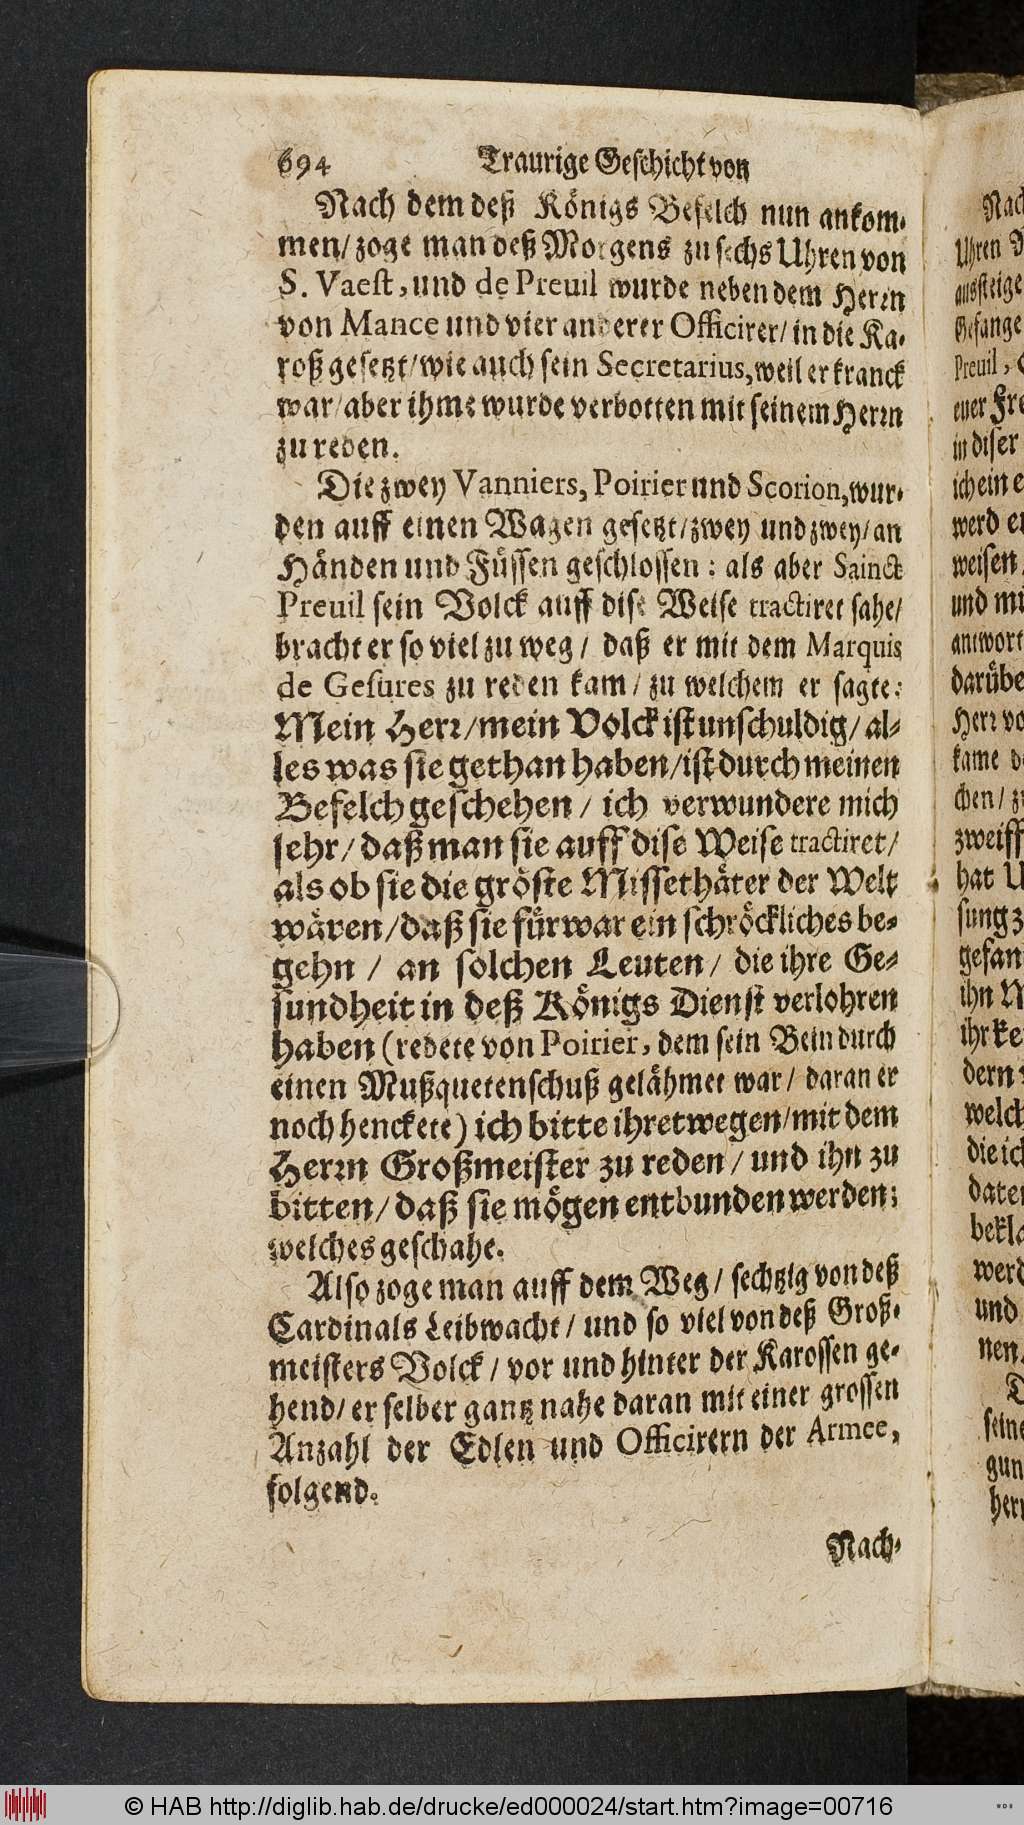 694 Traurige Geschicht von
Nach dem deß Königs Befelch nun ankom-
men/ zoge man deß Morgens zu sechs Uhren von
S. Vaest, und de Preuil wurde neben dem Herrn
von Mance und vier anderer Officirer/ in die Ka-
roß gesetzt/ wie auch sein Secretarius, weil er kranck
war/ aber ihme wurde verbotten mit seinem Herrn
zu reden.
Die zwey Vanniers, Poirier und Scorion, wur-
den auff einen Wagen gesetzt/ zwey und zwey/ an
Händen und Füssen geschlossen: als aber Sainct
Preuil sein Volck auff dise Weise tractiret sahe/
bracht er so viel zu weg/ daß er mit dem Marquis
de Gesures zu reden kam/ zu welchem er sagte:
Mein Herr/ mein Volck ist unschuldig/ al-
les was sie gethan haben/ ist durch meinen
Befelch geschehen/ ich verwundere mich
sehr/ daß man sie auff dise Weise tractiret/
als ob sie die gröste Missethäter der Welt
wären/ daß sie fürwar ein schröckliches be-
gehn/ an solchen Leuten/ die ihre Ge-
sundheit in deß Königs Dienst verlohren
haben (redete von Poirier, dem sein Bein durch
einen Mußquetenschuß gelähmet war/ daran er
noch henckete) ich bitte ihretwegen/ mit dem
Herrn Großmeister zu reden/ und ihn zu
bitten/ daß sie mögen entbunden werden;
welches geschahe.
Also zoge man auff dem Weg/ sechtzig von deß
Cardinals Leibwacht/ und so viel von deß Groß-
meisters Volck/ vor und hinter der Karossen ge-
hend/ er selber gantz nahe daran mit einer grossen
Anzahl der Edlen und Officirern der Armee,
folgend.
Nach-
Nach
Uhren
aussteige
Gefange
Preuil,
euer Fre
in diser
ich ein e
werd er
weisen
und mi
antwort
darübe
Herr vo
kame d
chen/ zu
zweiff
hat U
sung z
gefan
ihn M
ihr ke
dern
welch
die ich
daten
bekla
werd
und
nen
D
seine
gun
herr
© HAB http://diglib.hab.de/drucke/ed000024/start.htm?image=00716